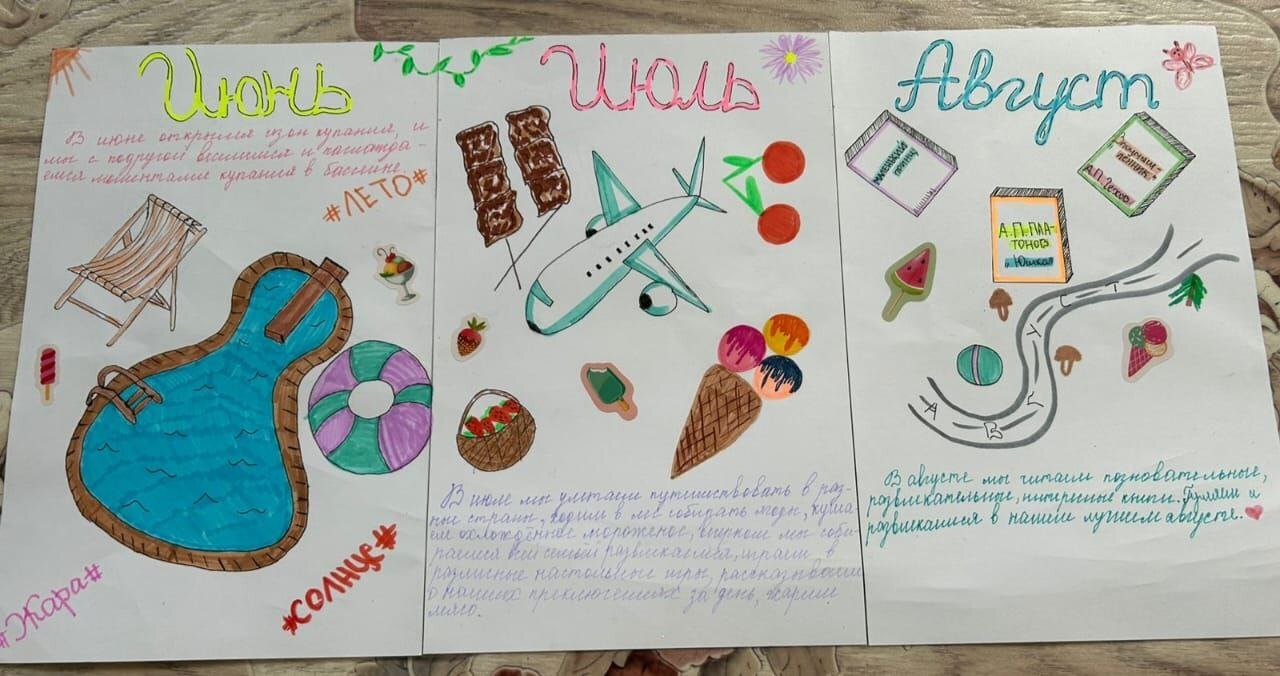 Июнь
В июне открылся сезон купания, и
мы с подругой веселимся и наслажда-
емся моментами купания в бассейне.
#ЛЕТО#
#Жара#
#СОЛНЦЕ#
Июль
В июле мы улетаем путешествовать в раз-
ные страны, ходим в лес собирать ягоды, куша-
ем охлаждённое мороженое, вечером мы соби-
раемся всей семьёй развлекаемся, играем в
различные настольные игры, рассказываем
о наших приключениях за день, жарим
мясо.
Август
МАЛЕНЬКИЙ
ПРИНЦ
А.П. Чехов
А.П. ПЛА-
ТОНОВ
"Юшка"
А В Г У С Т
В августе мы читаем познавательные,
развлекательные, интересные книги. Гуляем и
развлекаемся в нашем лучшем августе.